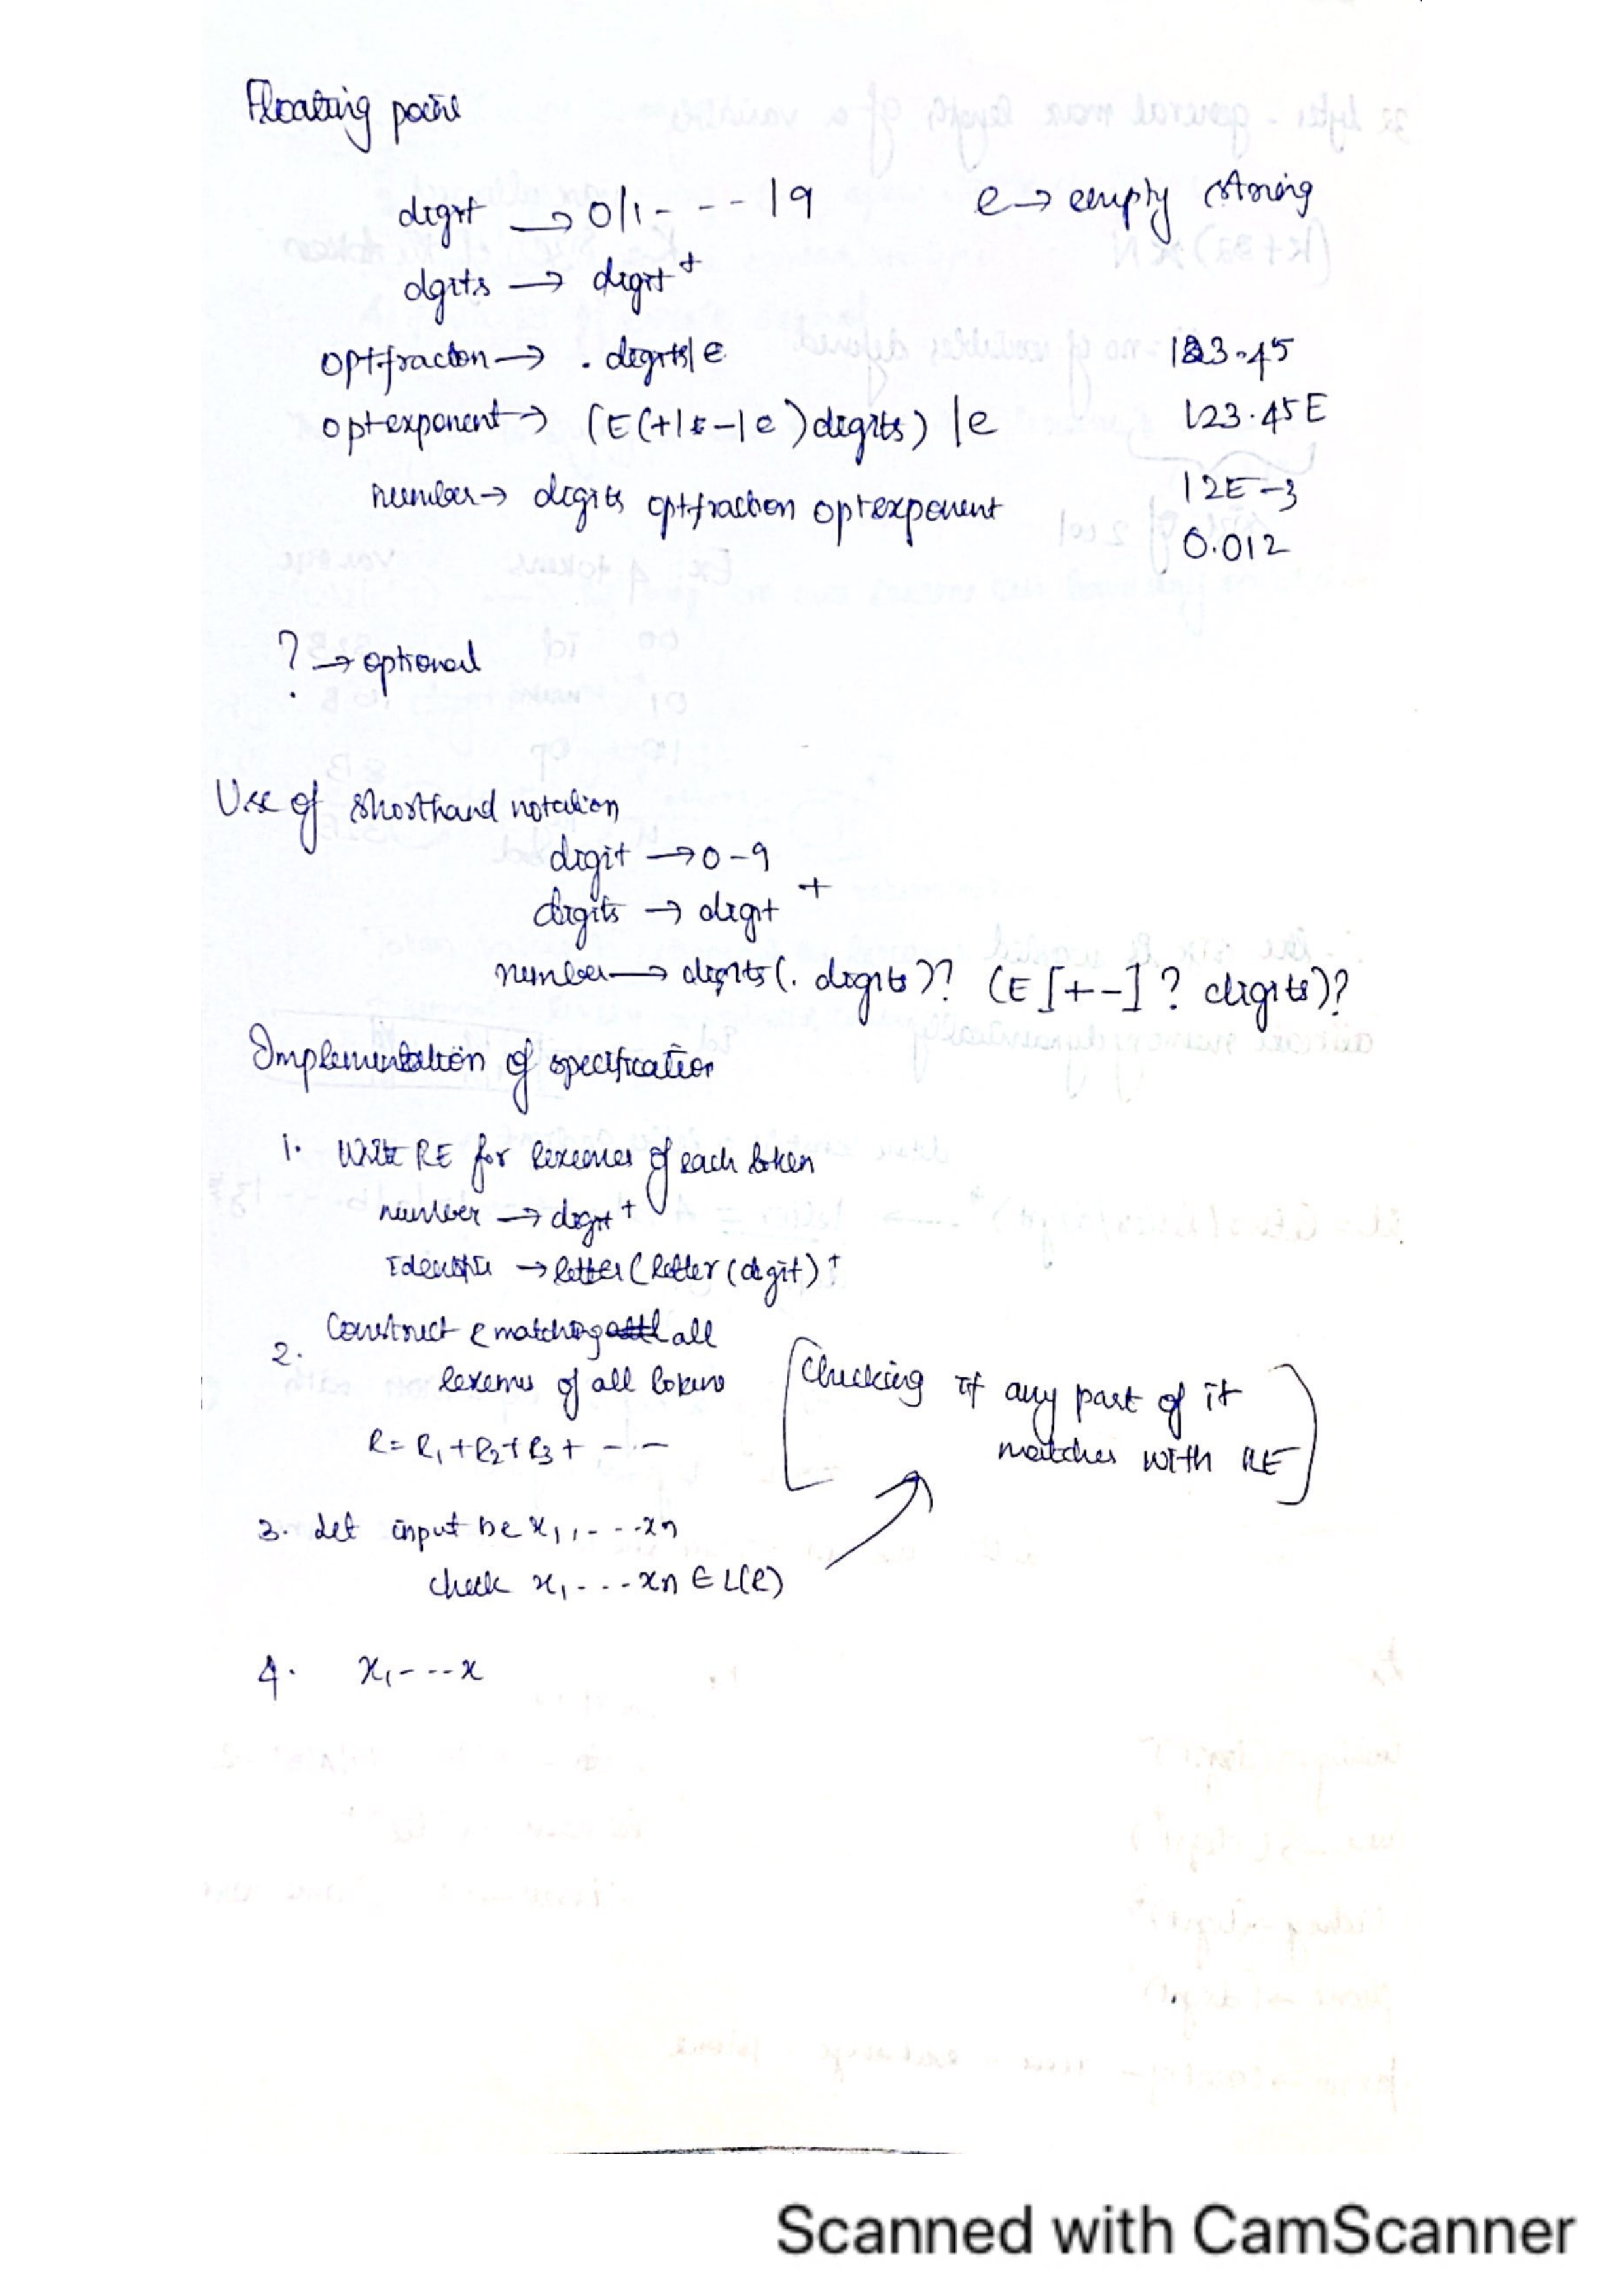 Floating point
digit → 0|1 - - - | 9    e → empty string
dgits → digit+
optfracton → . digits|e    123.45
optexponent → (E(+|-|e) digits) |e    123.45E
number → digits optfraction optexponent    12E-3
0.012
? → optional
Use of shorthand notation
digit → 0-9
digits → digit +
number → digits(. digits)? (E [+-] ? digits)?
Implementation of specification
1. Write RE for lexemes of each token
number → digit+
→ letter (letter (digit)+
2. Construct R matching all
lexems of all tokens
R = R1 + R2 + R3 + - -
[Checking if any part of it
matches with RE]
3. Let input be x1, - - - xn
check x1 - - - xn ∈ L(R)
4. x1 - - - x
Scanned with CamScanner